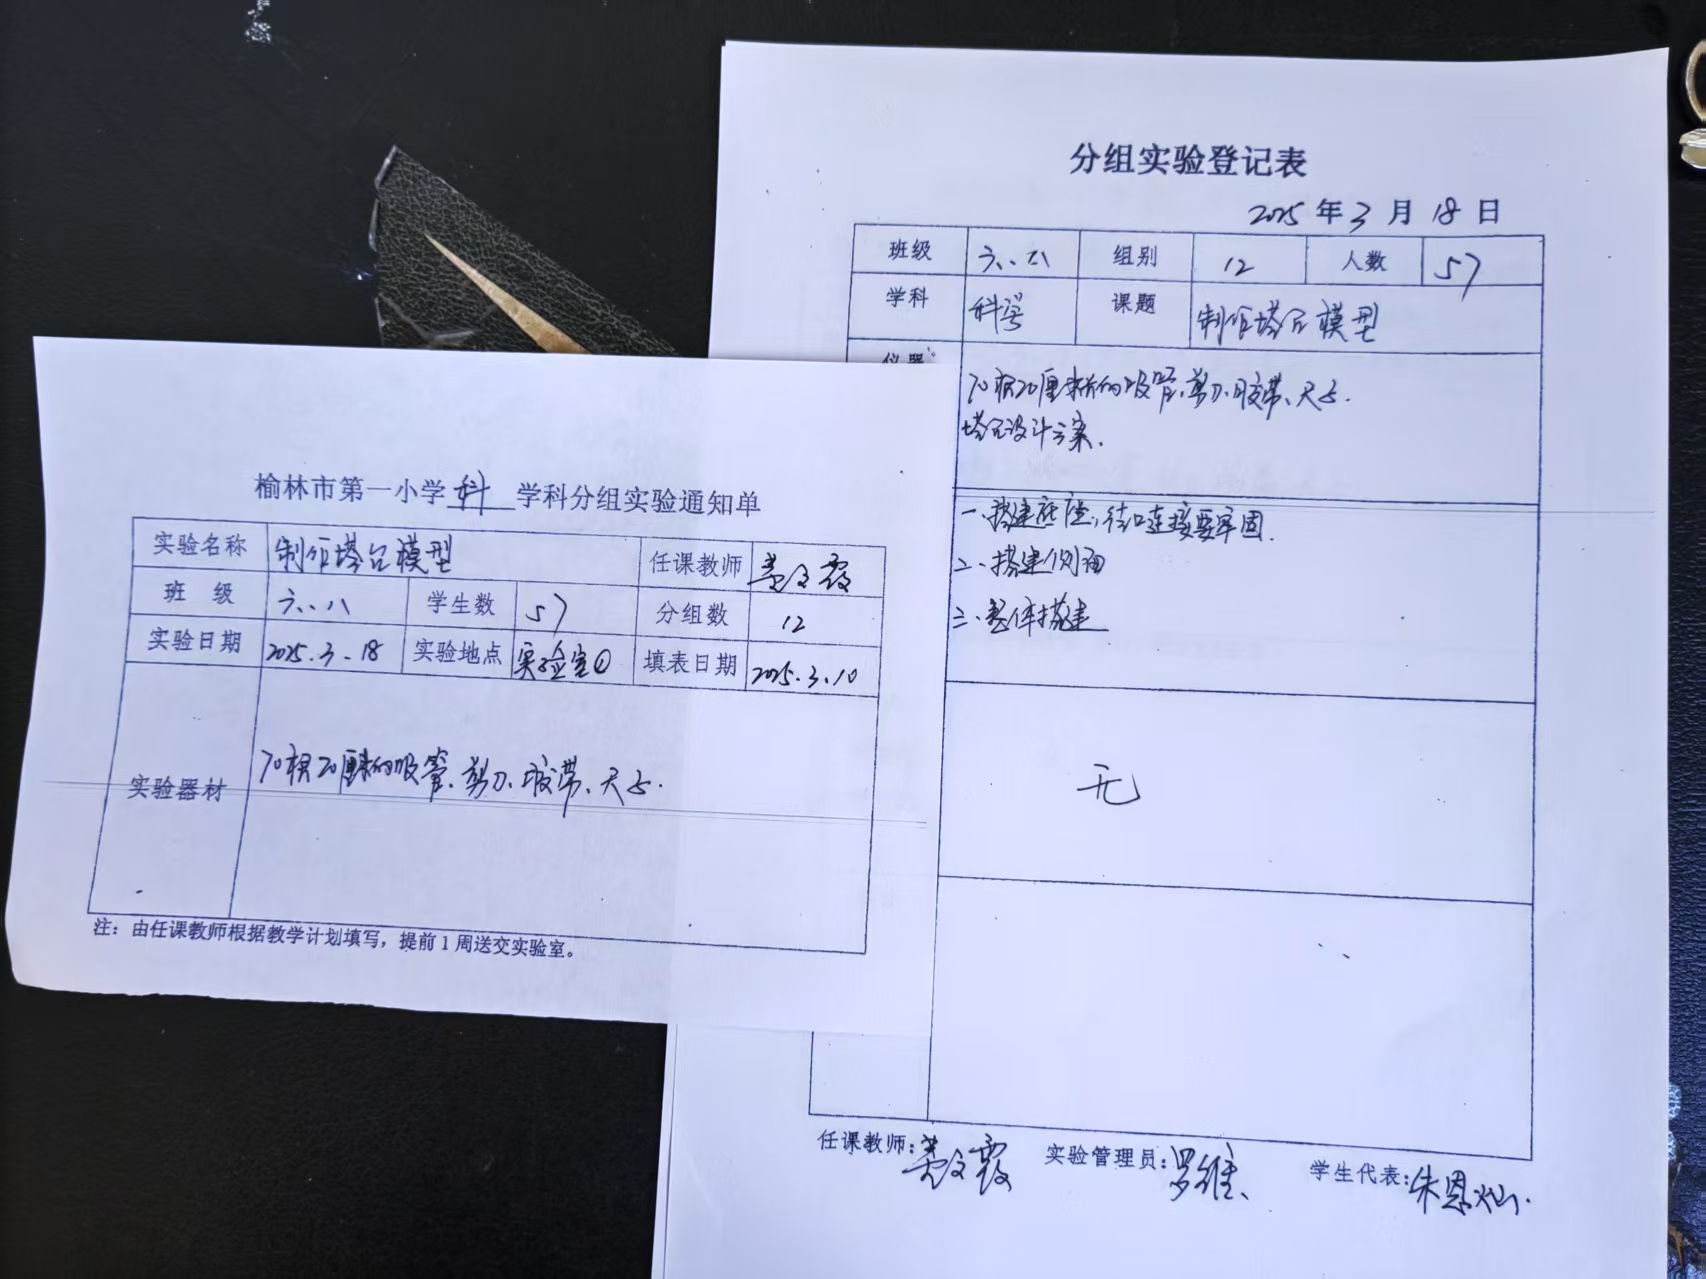 榆林市第一小学 科 学科分组实验通知单
实验名称 制作塔台模型 任课教师 姜文霞
班 级 六.八 学生数 57 分组数 12
实验日期 2025.3.18 实验地点 实验室① 填表日期 2025.3.10
实验器材 70根20厘米的吸管、剪刀、胶带、尺子.
注：由任课教师根据教学计划填写，提前1周送交实验室。
分组实验登记表
2025 年 3 月 18 日
班级 六.八 组别 12 人数 57
学科 科学 课题 制作塔台模型
仪器
70根20厘米长的吸管、剪刀、胶带、尺子.
塔台设计方案.
一、搭建底座，接口连接要牢固.
二、搭建侧面
三、整体搭建
无
任课教师: 姜文霞 实验管理员: 罗维 学生代表: 朱恩灿.